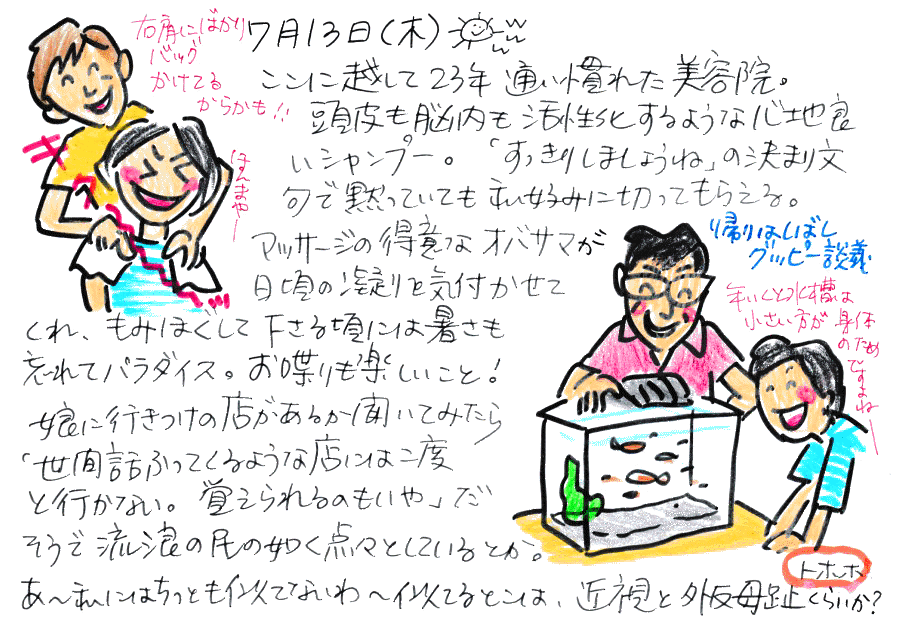 7月13日(木)
右肩にばかり
バッグ
かけてる
からかも!!
ほんまや〜
ここに越して23年通い慣れた美容院。
頭皮も脳内も活性化するような心地良
いシャンプー。「すっきりしましょうね」の決まり文
句で黙っていても私好みに切ってもらえる。
マッサージの得意なオバサマが
日頃の凝りを気付かせて
くれ、もみほぐして下さる頃には暑さも
忘れてパラダイス。お喋りも楽しいこと!
帰りはしばし
グッピー談義
年いくと水槽は
小さい方が身体
のため
ですよね〜
娘に行きつけの店があるか聞いてみたら
「世間話ふってくるような店には二度
と行かない。覚えられるのもいや」だ
そうで流浪の民の如く点々としているとか。
トホホ
あ〜私にはちっとも似てないわ〜似てるとこは、近視と外反母趾くらいか?